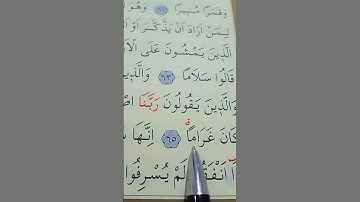 وَقَمَرًا مُنِيرًا ﴿٦١﴾ وَهُوَ
لِمَنْ اَرَادَ اَنْ يَذَّكَّرَ اَوْ اَ
الَّذِينَ يَمْشُونَ عَلَى الْاَ
قَالُوا سَلَامًا ﴿٦٣﴾ وَالَّذِينَ
وَالَّذِينَ يَقُولُونَ رَبَّنَا اصْ
كَانَ غَرَامًا ﴿٦٥﴾ اِنَّهَا سَ
ا اَنْفَقُوا لَمْ يُسْرِفُوا